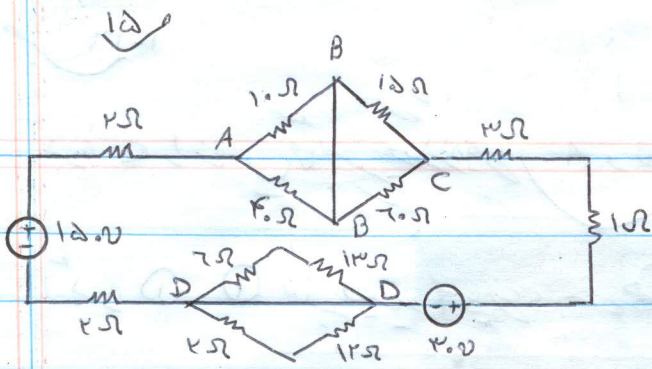 ۱۵
B
۱۰Ω ۱۵Ω
۲Ω A C ۳Ω
۴۰Ω B ۶۰Ω
۱Ω
+
-
۱۵۰v
۶Ω ۱۳Ω
D D - +
۲Ω ۲Ω ۱۲Ω ۳۰v